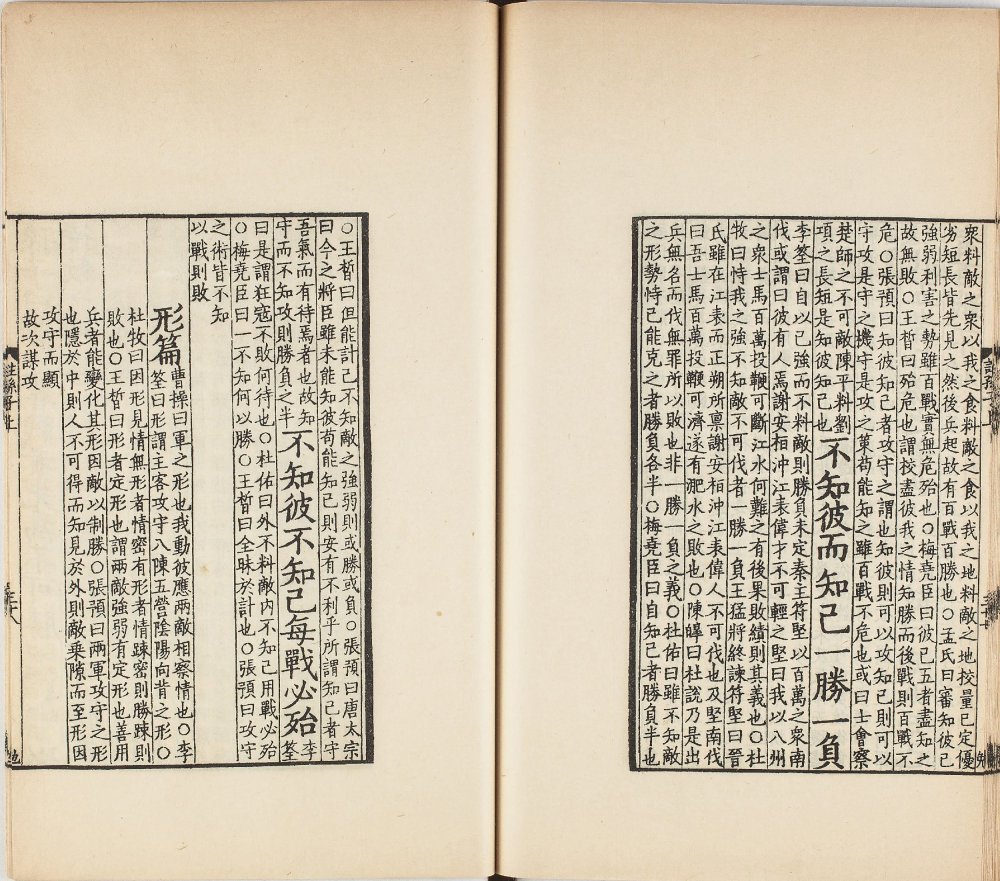 衆料敵之衆以我之食料敵之食以我之地料敵之地校量已定優
劣短長皆先見之然後兵起故有百戰百勝也○孟氏曰審知彼己
強弱利害之勢雖百戰實無危殆也○梅堯臣曰彼己五者盡知之
故無敗○王晳曰殆危也謂校盡彼我之情知勝而後戰則百戰不
危○張預曰知彼知己者攻守之謂也知彼則可以攻知己則可以
守攻是守之機守是攻之策苟能知之雖百戰不危也或曰士會察
楚師之不可敵陳平料劉
項之長短是知彼知己也
不知彼而知己一勝一負
李筌曰自以己強而不料敵則勝負未定秦主符堅以百萬之衆南
伐或謂曰彼有人焉謝安桓沖江表偉才不可輕之堅曰我以八州
之衆士馬百萬投鞭可斷江水何難之有後果敗績則其義也○杜
牧曰恃我之強不知敵不可伐者一勝一負王猛將終諫符堅曰晉
氏雖在江表而正朔所稟謝安桓沖江表偉人不可伐也及堅南伐
曰吾士馬百萬投鞭可濟遂有淝水之敗也○陳皥曰杜說乃是出
兵無名而伐無罪所以敗也非一勝一負之義○杜佑曰雖不知敵
之形勢恃己能克之者勝負各半○梅堯臣曰自知己者勝負半也
○王晳曰但能計己不知敵之強弱則或勝或負○張預曰唐太宗
曰今之將臣雖未能知彼苟能知己則安有不利乎所謂知己者守
吾氣而有待焉者也故知
守而不知攻則勝負之半
不知彼不知己每戰必殆
李筌
曰是謂狂寇不敗何待也○杜佑曰外不料敵內不知己用戰必殆
○梅堯臣曰一不知何以勝○王晳曰全昧於計也○張預曰攻守
之術皆不知
以戰則敗
形篇
曹操曰軍之形也我動彼應兩敵相察情也○李
筌曰形謂主客攻守八陳五營陰陽向背之形○
杜牧曰因形見情無形者情密有形者情疎密則勝疎則
敗也○王晳曰形者定形也謂兩敵強弱有定形也善用
兵者能變化其形因敵以制勝○張預曰兩軍攻守之形
也隱於中則人不可得而知見於外則敵乘隙而至形因
攻守而顯
故次謀攻